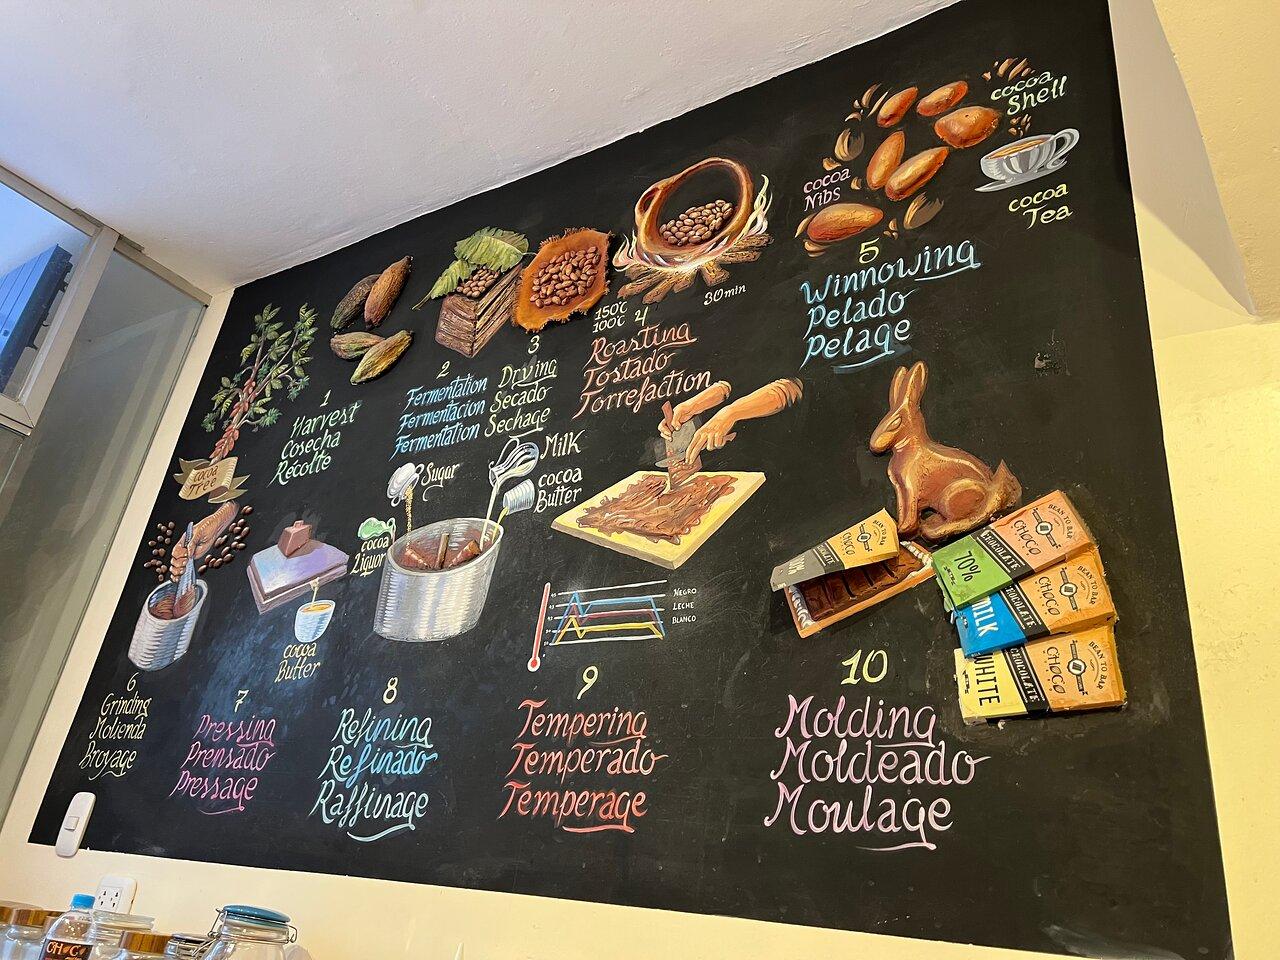 cocoa
Tree
1
Harvest
Cosecha
Récolte
2
Fermentation
Fermentacion
Fermentation
3
Drying
Secado
Sechage
150°C
100°C
30min
4
Roasting
Tostado
Torrefaction
cocoa
Nibs
cocoa
Shell
cocoa
Tea
5
Winnowing
Pelado
Pelage
6
Grinding
Molienda
Broyage
cocoa
Butter
7
Pressing
Prensado
Pressage
Sugar
Milk
cocoa
Butter
cocoa
Liquor
8
Refining
Refinado
Raffinage
NEGRO
LECHE
BLANCO
9
Tempering
Temperado
Temperage
CHOCO
BEAN TO BAR
70%
CHOCOLATE
CHOCO
BEAN TO BAR
MILK
CHOCOLATE
CHOCO
BEAN TO BAR
WHITE
CHOCOLATE
CHOCO
BEAN TO BAR
10
Molding
Moldeado
Moulage